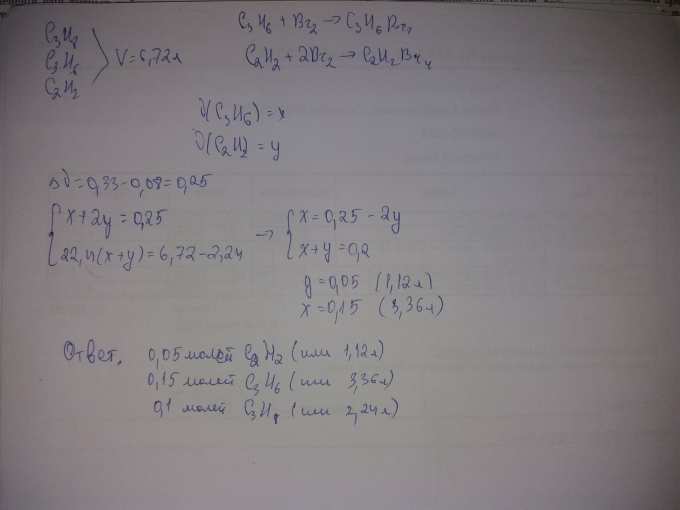 C₃H₈
C₃H₆
C₂H₂
V = 6,72л
C₃H₆ + Br₂ → C₃H₆Br₂
C₂H₂ + 2Br₂ → C₂H₂Br₄
ν(C₃H₆) = x
ν(C₂H₂) = y
Δν = 0,33 - 0,08 = 0,25
x + 2y = 0,25
22,4(x+y) = 6,72 - 2,24
→
x = 0,25 - 2y
x + y = 0,2
y = 0,05 (1,12л)
x = 0,15 (3,36л)
Ответ. 0,05 молей C₂H₂ (или 1,12л)
0,15 молей C₃H₆ (или 3,36л)
0,1 молей C₃H₈ (или 2,24л)